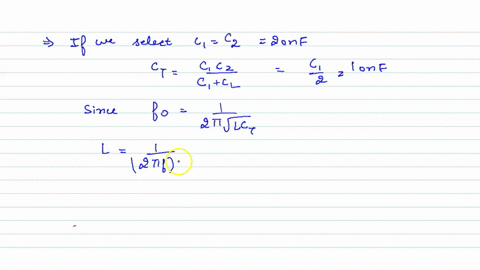 ⇒ If we select C₁ = C₂ = 20nF
C_T = C₁C₂ / (C₁+C_L) = C₁/2 = 10nF
Since f₀ = 1 / (2π√(LC_T))
L = 1 / (2πf)